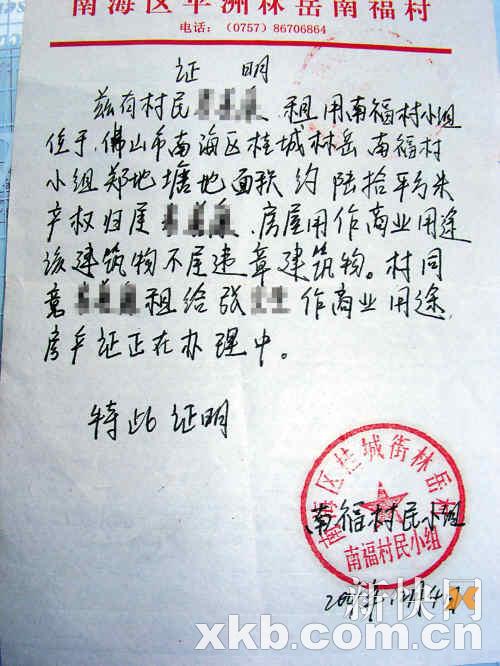 南海区平洲林岳南福村
电话：（0757）86706864
证 明
兹有村民 租用南福村小组
位于，佛山市南海区桂城林岳 南福村
小组郑地塘地面积约 陆拾平方米
产权归属 ，房屋用作商业用途
该建筑物不属违章建筑物。村同
意 租给张 作商业用途，
房产证正在办理中。
特此证明
南海区桂城街林岳
南福村民小组
南福村民小组
新快网
xkb.com.cn